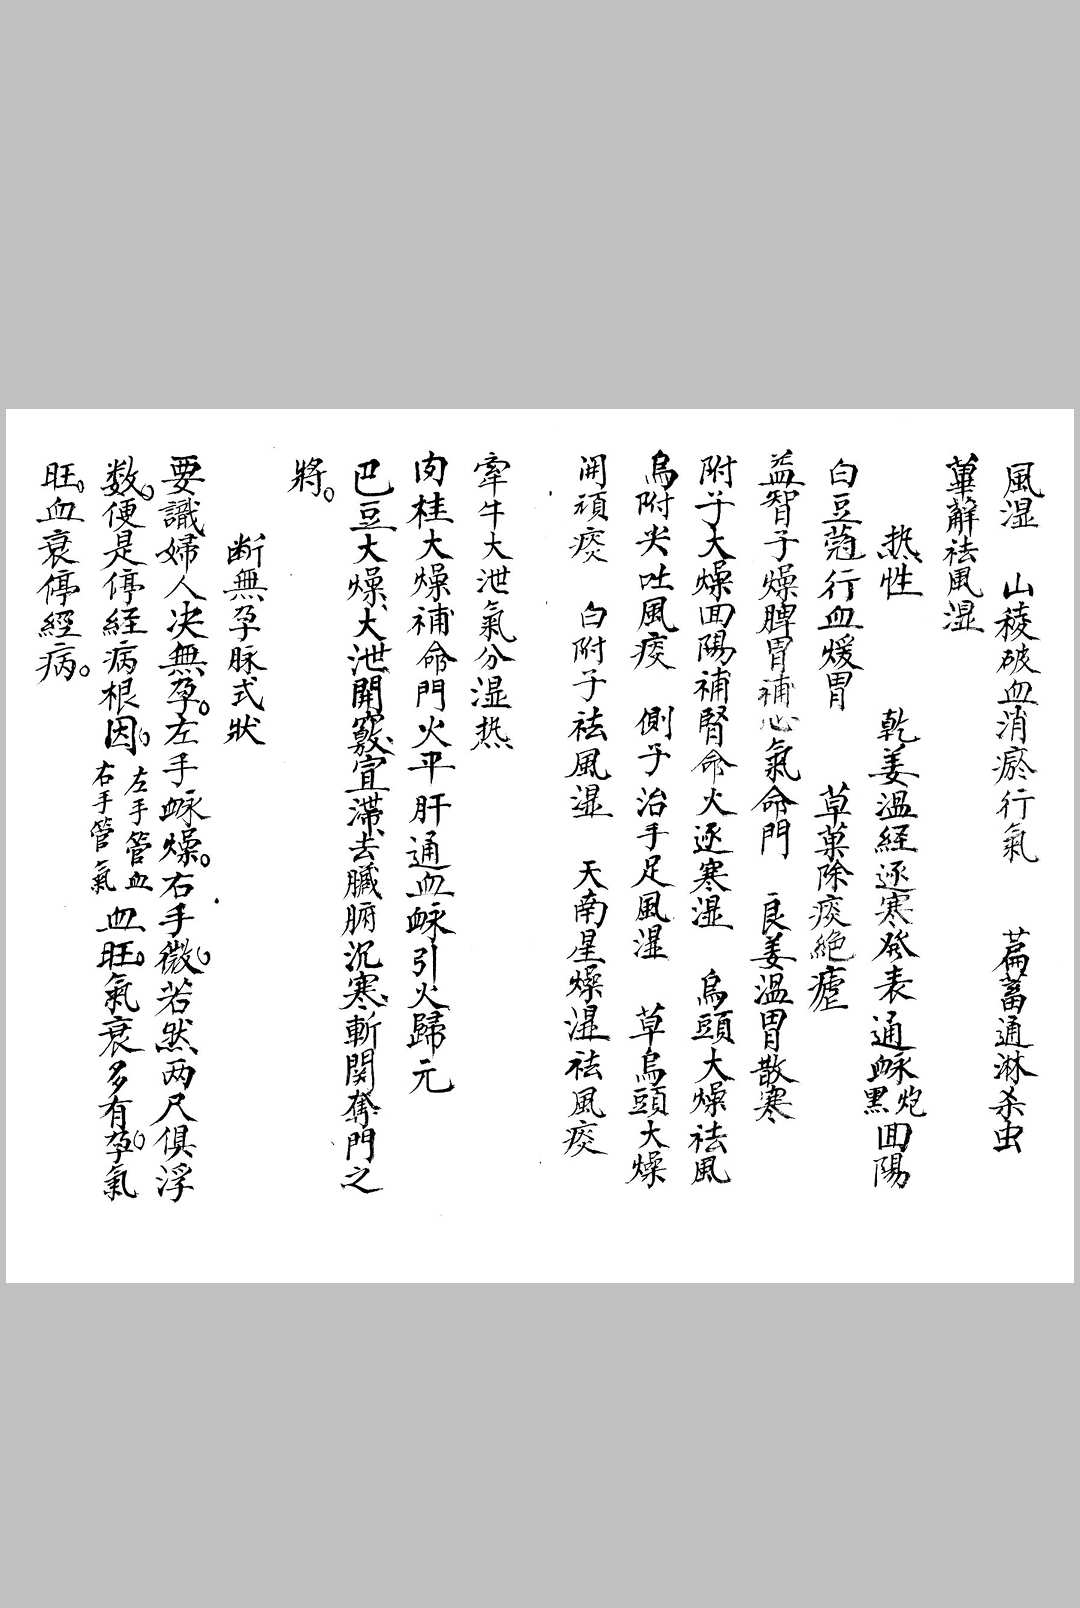 風湿　山稜破血消瘀行氣　萹蓄通淋杀虫
萆薢祛風湿
热性　　乾姜溫経逐寒発表通脉炮黒回陽
白豆蔻行血煖胃　草菓除痰絶瘧
益智子燥脾胃補心氣命門　良姜溫胃散寒
附子大燥回陽補腎命火逐寒湿　烏頭大燥祛風
烏附尖吐風痰　側子治手足風湿　草烏頭大燥
開頑痰　白附子祛風湿　天南星燥湿祛風痰
牽牛大泄氣分湿热
肉桂大燥補命門火平肝通血脉引火歸元
巴豆大燥、大泄開竅、宣滯、去臟腑沉寒、斬関奪門之
將。
断無孕脈式狀
要識婦人决無孕。左手脉燥。右手微。若然两尺俱浮
数。便是停経病根因。左手管血右手管氣血旺。氣衰多有孕。氣
旺。血衰停經病。